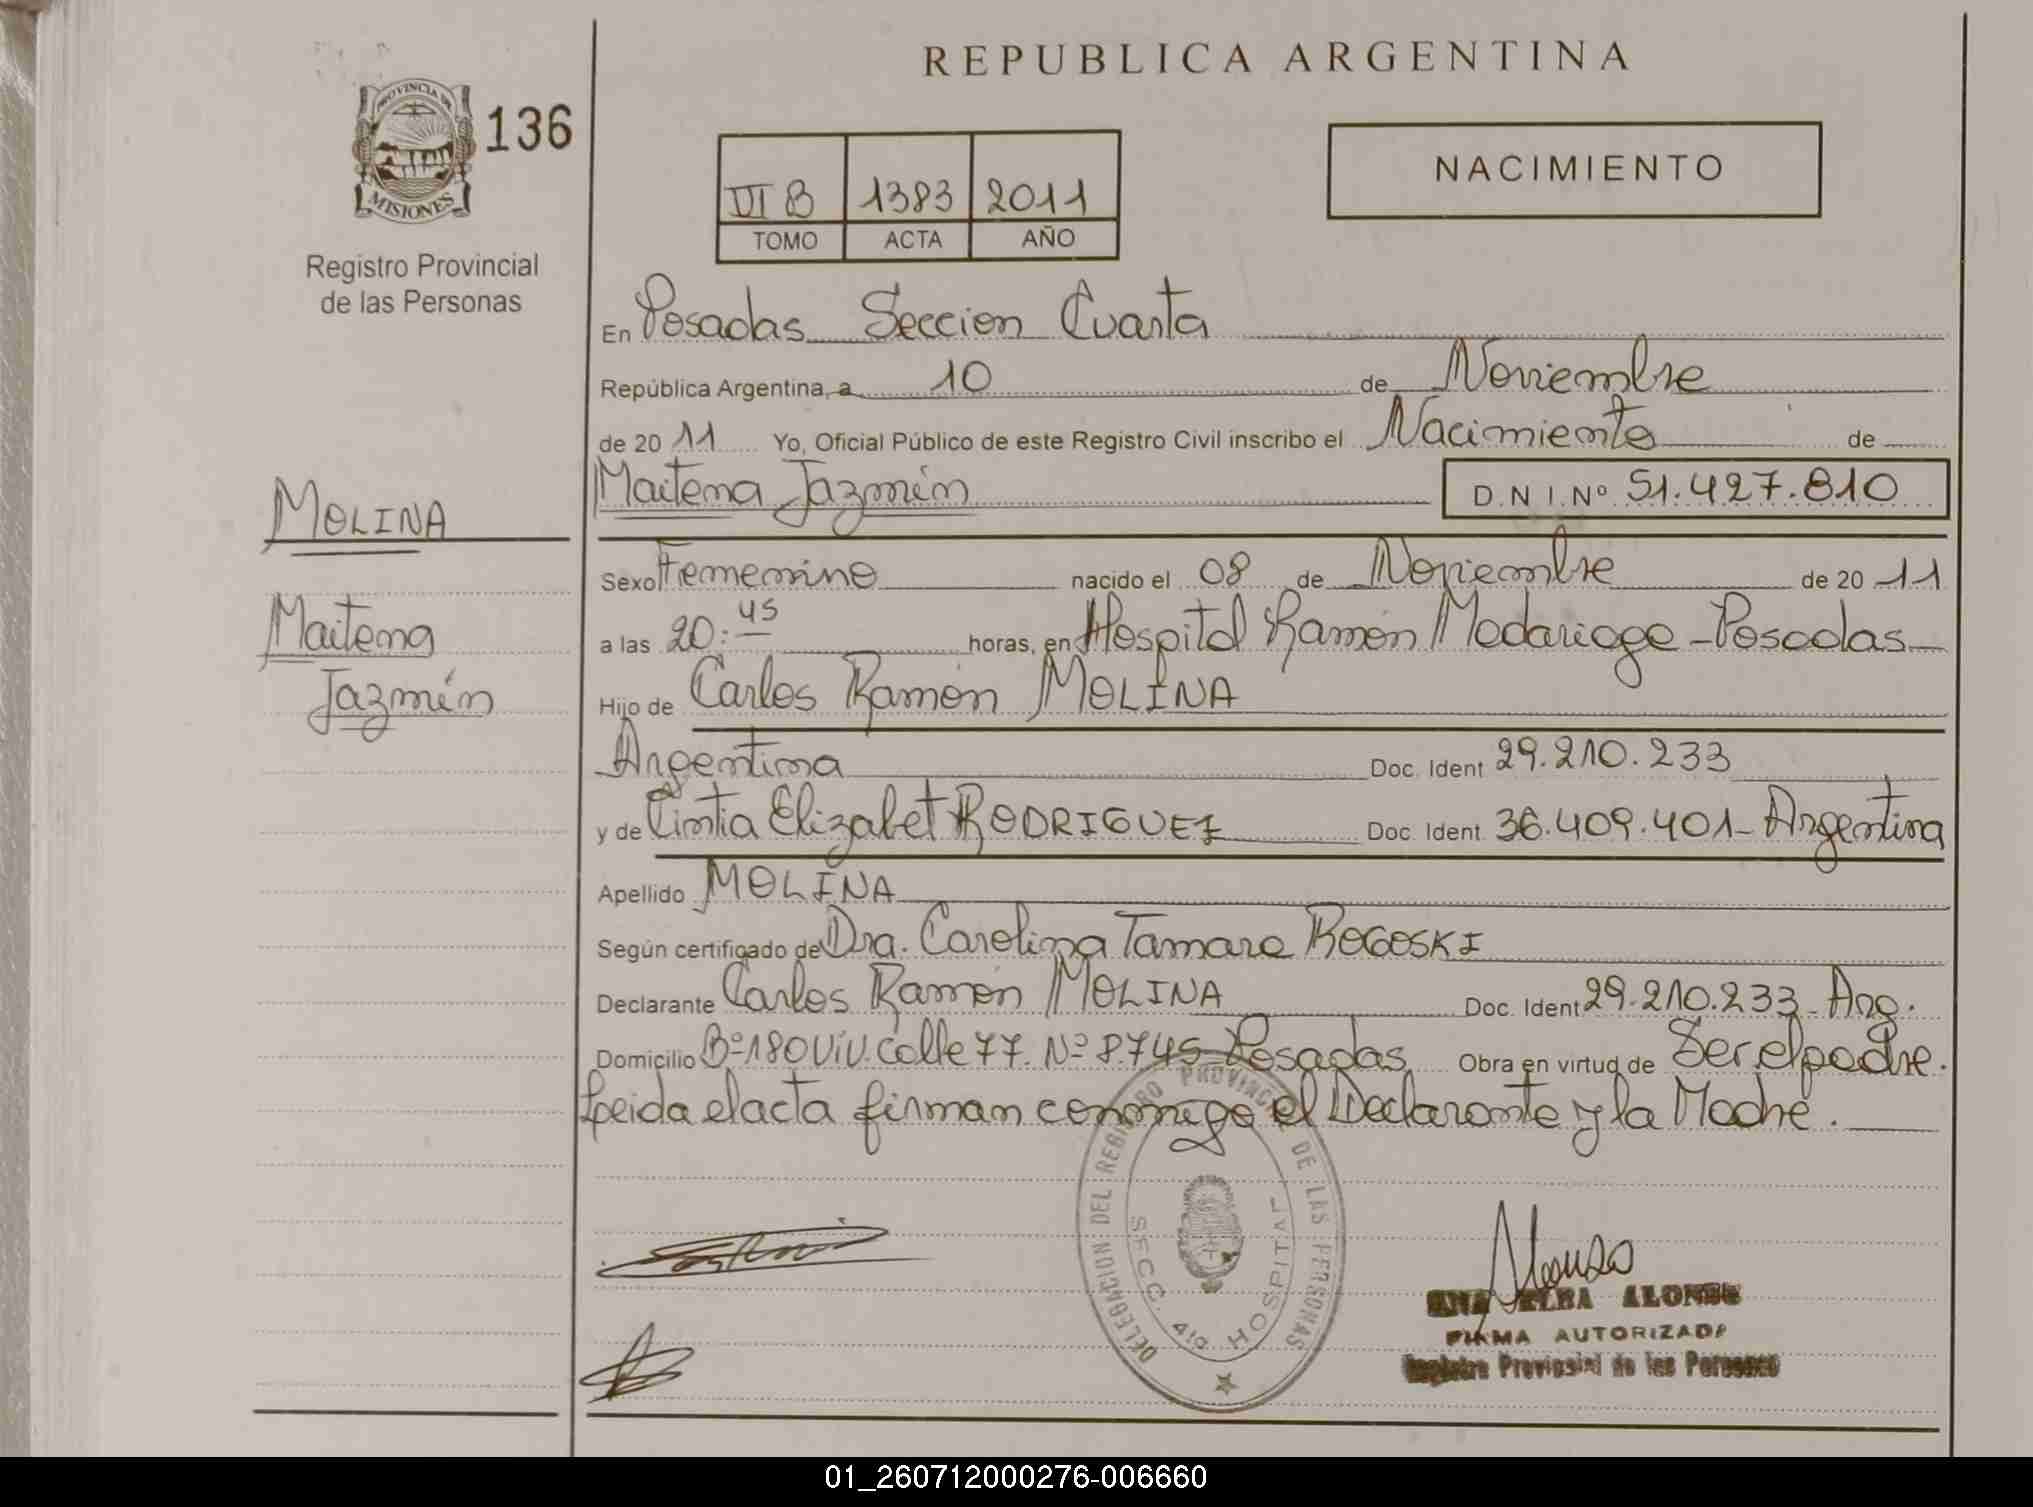 REPUBLICA ARGENTINA
PROVINCIA DE
MISIONES
136
Registro Provincial
de las Personas
VI B 1383 2011
TOMO ACTA AÑO
NACIMIENTO
En Posadas Seccion Cuarta
República Argentina, a 10 de Noviembre
de 20 11 Yo, Oficial Público de este Registro Civil inscribo el Nacimiento de
Maitena Jazmín D.N.I. Nº 51.427.810
MOLINA
Maitena
Jazmín
Sexo Femenino nacido el 08 de Noviembre de 20 11
a las 20:45 horas, en Hospital Ramón Madariaga - Posadas
Hijo de Carlos Ramón MOLINA
Argentina Doc. Ident 29.210.233
y de Cintia Elizabet RODRIGUEZ Doc. Ident. 36.409.401 - Argentina
Apellido MOLINA
Según certificado de Dra. Carolina Tamara ROGOSKI
Declarante Carlos Ramón MOLINA Doc. Ident 29.210.233 - Arg.
Domicilio Bº 180 Viv. Calle 77. Nº 8.745 Posadas Obra en virtud de Ser el padre.
Leida el acta firman conmigo el Declarante y la Madre.
DELEGACION DEL REGISTRO PROVINCIAL DE LAS PERSONAS
SECC. 4ta HOSPITAL
Alonso
ANA ELBA ALONSO
FIRMA AUTORIZADA
Registro Provincial de las Personas
01_260712000276-006660